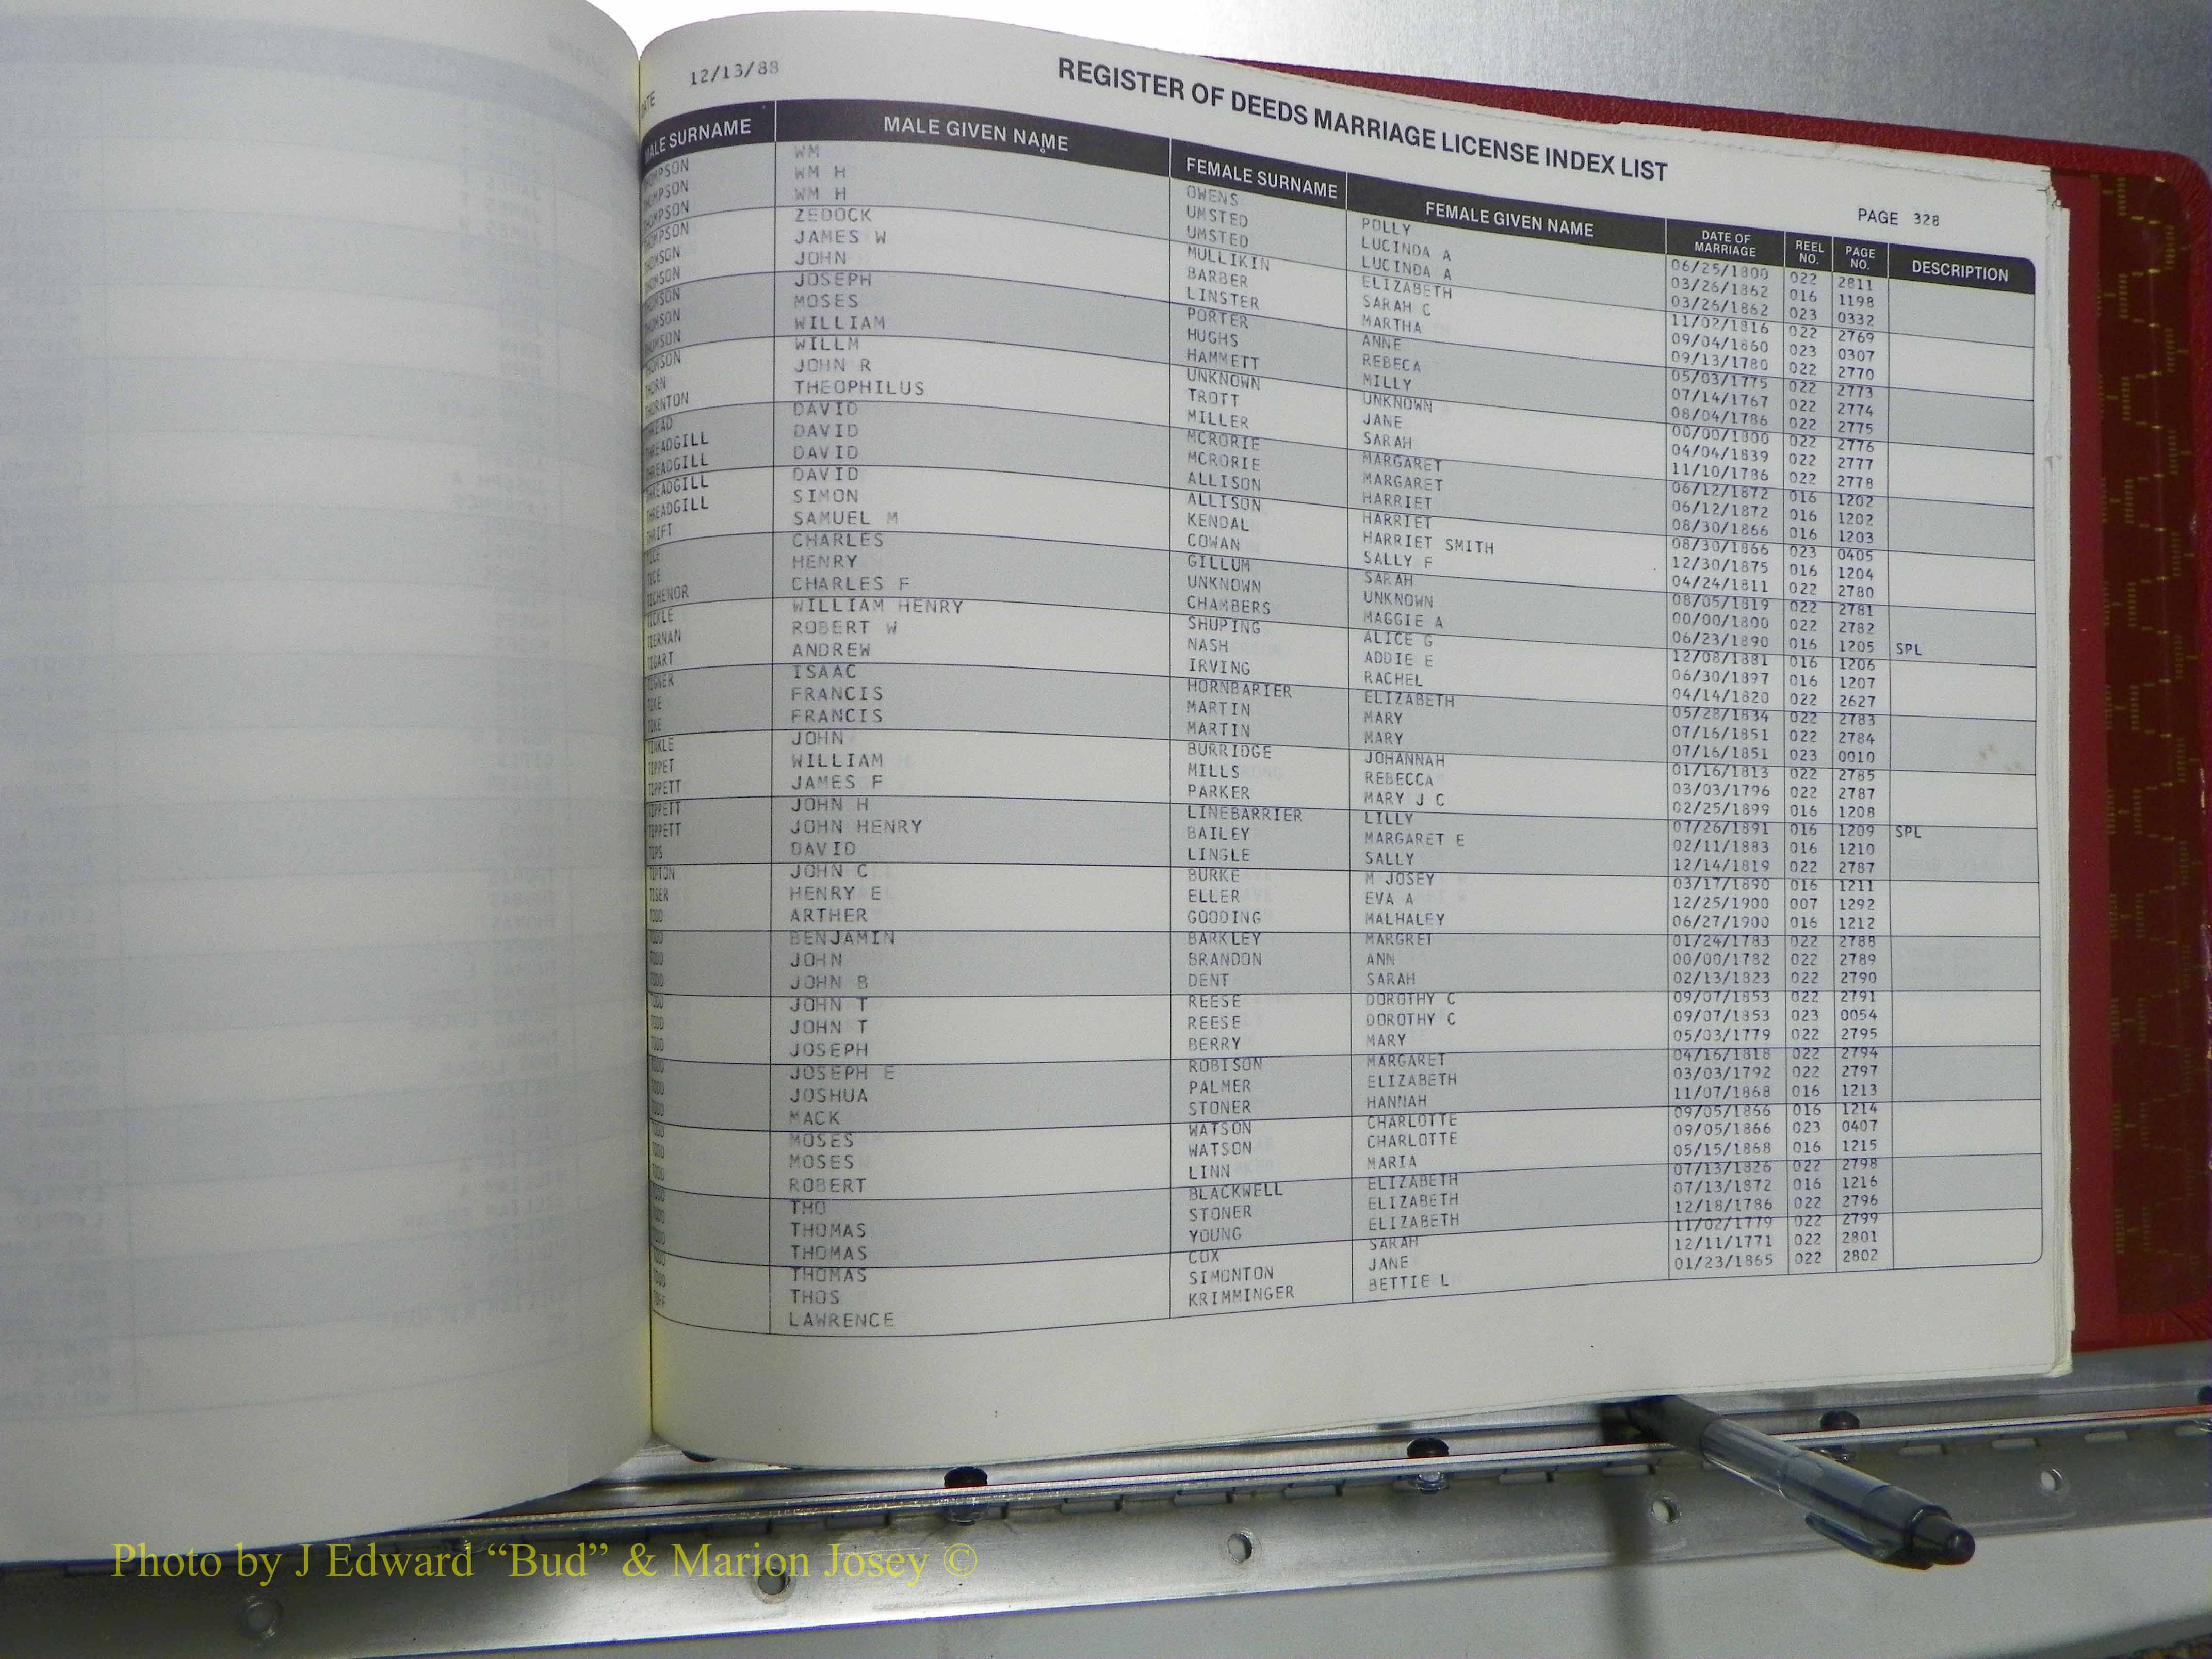 DATE 12/13/88
REGISTER OF DEEDS MARRIAGE LICENSE INDEX LIST
PAGE 328
MALE SURNAME MALE GIVEN NAME FEMALE SURNAME FEMALE GIVEN NAME DATE OF MARRIAGE REEL NO. PAGE NO. DESCRIPTION
THOMPSON WM OWENS POLLY 06/25/1800 022 2811
THOMPSON WM H UMSTED LUCINDA A 03/26/1862 016 1198
THOMPSON WM H UMSTED LUCINDA A 03/26/1862 023 0332
THOMPSON ZEDOCK MULLIKIN ELIZABETH 11/02/1816 022 2769
THOMSON JAMES W BARBER SARAH C 09/04/1860 023 0307
THOMSON JOHN LINSTER MARTHA 09/13/1780 022 2770
THOMSON JOSEPH PORTER ANNE 05/03/1775 022 2773
THOMSON MOSES HUGHS REBECA 07/14/1767 022 2774
THOMSON WILLIAM HAMMETT MILLY 08/04/1786 022 2775
THOMSON WILLM UNKNOWN UNKNOWN 00/00/1800 022 2776
THORN JOHN R TROTT JANE 04/04/1839 022 2777
THORNTON THEOPHILUS MILLER SARAH 11/10/1786 022 2778
THREAD DAVID MCRORIE MARGARET 06/12/1872 016 1202
THREADGILL DAVID MCRORIE MARGARET 06/12/1872 016 1202
THREADGILL DAVID ALLISON HARRIET 08/30/1866 016 1203
THREADGILL DAVID ALLISON HARRIET 08/30/1866 023 0405
THREADGILL SIMON KENDAL HARRIET SMITH 12/30/1875 016 1204
THRIFT SAMUEL M COWAN SALLY F 04/24/1811 022 2780
TICE CHARLES GILLUM SARAH 08/05/1819 022 2781
TICE HENRY UNKNOWN UNKNOWN 00/00/1800 022 2782
TICHENOR CHARLES F CHAMBERS MAGGIE A 06/23/1890 016 1205 SPL
TICKLE WILLIAM HENRY SHUPING ALICE G 12/08/1881 016 1206
TIERNAN ROBERT W NASH ADDIE E 06/30/1897 016 1207
TIGART ANDREW IRVING RACHEL 04/14/1820 022 2627
TIGNER ISAAC HORNBARIER ELIZABETH 05/28/1834 022 2783
TIKE FRANCIS MARTIN MARY 07/16/1851 022 2784
TIKE FRANCIS MARTIN MARY 07/16/1851 023 0010
TINKLE JOHN BURRIDGE JOHANNAH 01/16/1813 022 2785
TIPPET WILLIAM MILLS REBECCA 03/03/1796 022 2787
TIPPETT JAMES F PARKER MARY J C 02/25/1899 016 1208
TIPPETT JOHN H LINEBARRIER LILLY 07/26/1891 016 1209 SPL
TIPPETT JOHN HENRY BAILEY MARGARET E 02/11/1883 016 1210
TIPS DAVID LINGLE SALLY 12/14/1819 022 2787
TIPTON JOHN C BURKE M JOSEY 03/17/1890 016 1211
TISER HENRY E ELLER EVA A 12/25/1900 007 1292
TODD ARTHER GOODING MALHALEY 06/27/1900 016 1212
TODD BENJAMIN BARKLEY MARGRET 01/24/1783 022 2788
TODD JOHN BRANDON ANN 00/00/1782 022 2789
TODD JOHN B DENT SARAH 02/13/1823 022 2790
TODD JOHN T REESE DOROTHY C 09/07/1853 022 2791
TODD JOHN T REESE DOROTHY C 09/07/1853 023 0054
TODD JOSEPH BERRY MARY 05/03/1779 022 2795
TODD JOSEPH E ROBISON MARGARET 04/16/1818 022 2794
TODD JOSHUA PALMER ELIZABETH 03/03/1792 022 2797
TODD MACK STONER HANNAH 11/07/1868 016 1213
TODD MOSES WATSON CHARLOTTE 09/05/1866 016 1214
TODD MOSES WATSON CHARLOTTE 09/05/1866 023 0407
TODD ROBERT LINN MARIA 05/15/1868 016 1215
TODD THO BLACKWELL ELIZABETH 07/13/1826 022 2798
TODD THOMAS STONER ELIZABETH 07/13/1872 016 1216
TODD THOMAS YOUNG ELIZABETH 12/18/1786 022 2796
TODD THOMAS COX SARAH 11/02/1779 022 2799
TODD THOS SIMONTON JANE 12/11/1771 022 2801
TOFF LAWRENCE KRIMMINGER BETTIE L 01/23/1865 022 2802
Photo by J Edward “Bud” & Marion Josey ©